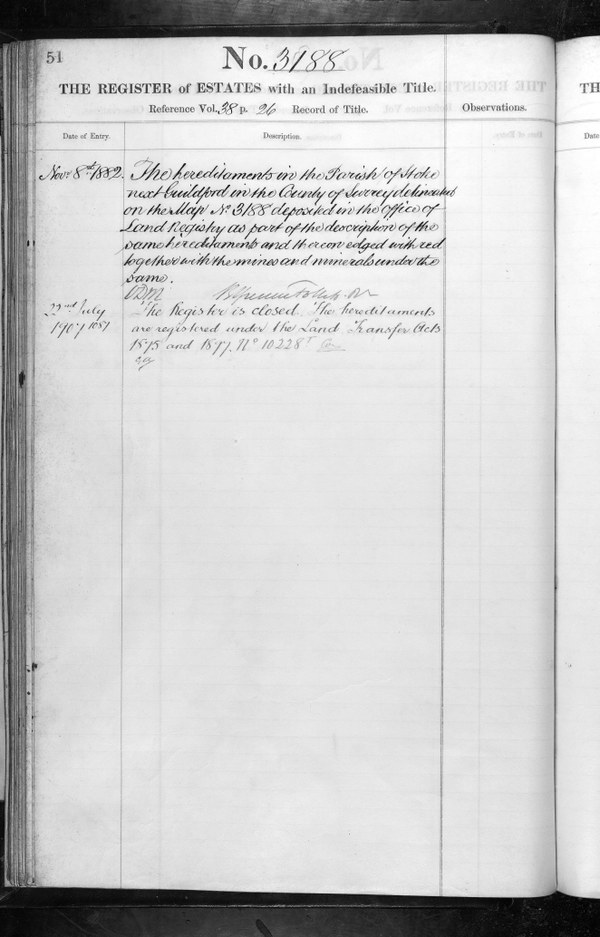 51
No. 3188
THE REGISTER of ESTATES with an Indefeasible Title.
Reference Vol. 38 p. 26 Record of Title.
Observations.
Date of Entry.
Description.
Novr 8th 1882.
The hereditaments in the Parish of Stoke
next Guildford in the County of Surrey delineated
on the Map No 3188 deposited in the office of
Land Registry as part of the description of the
same hereditaments and thereon edged with red
together with the mines and minerals under the
same.
22nd July
1907 1051
The Register is closed. The hereditaments
are registered under the Land Transfer Acts
1875 and 1897. No 10228
TH
Date